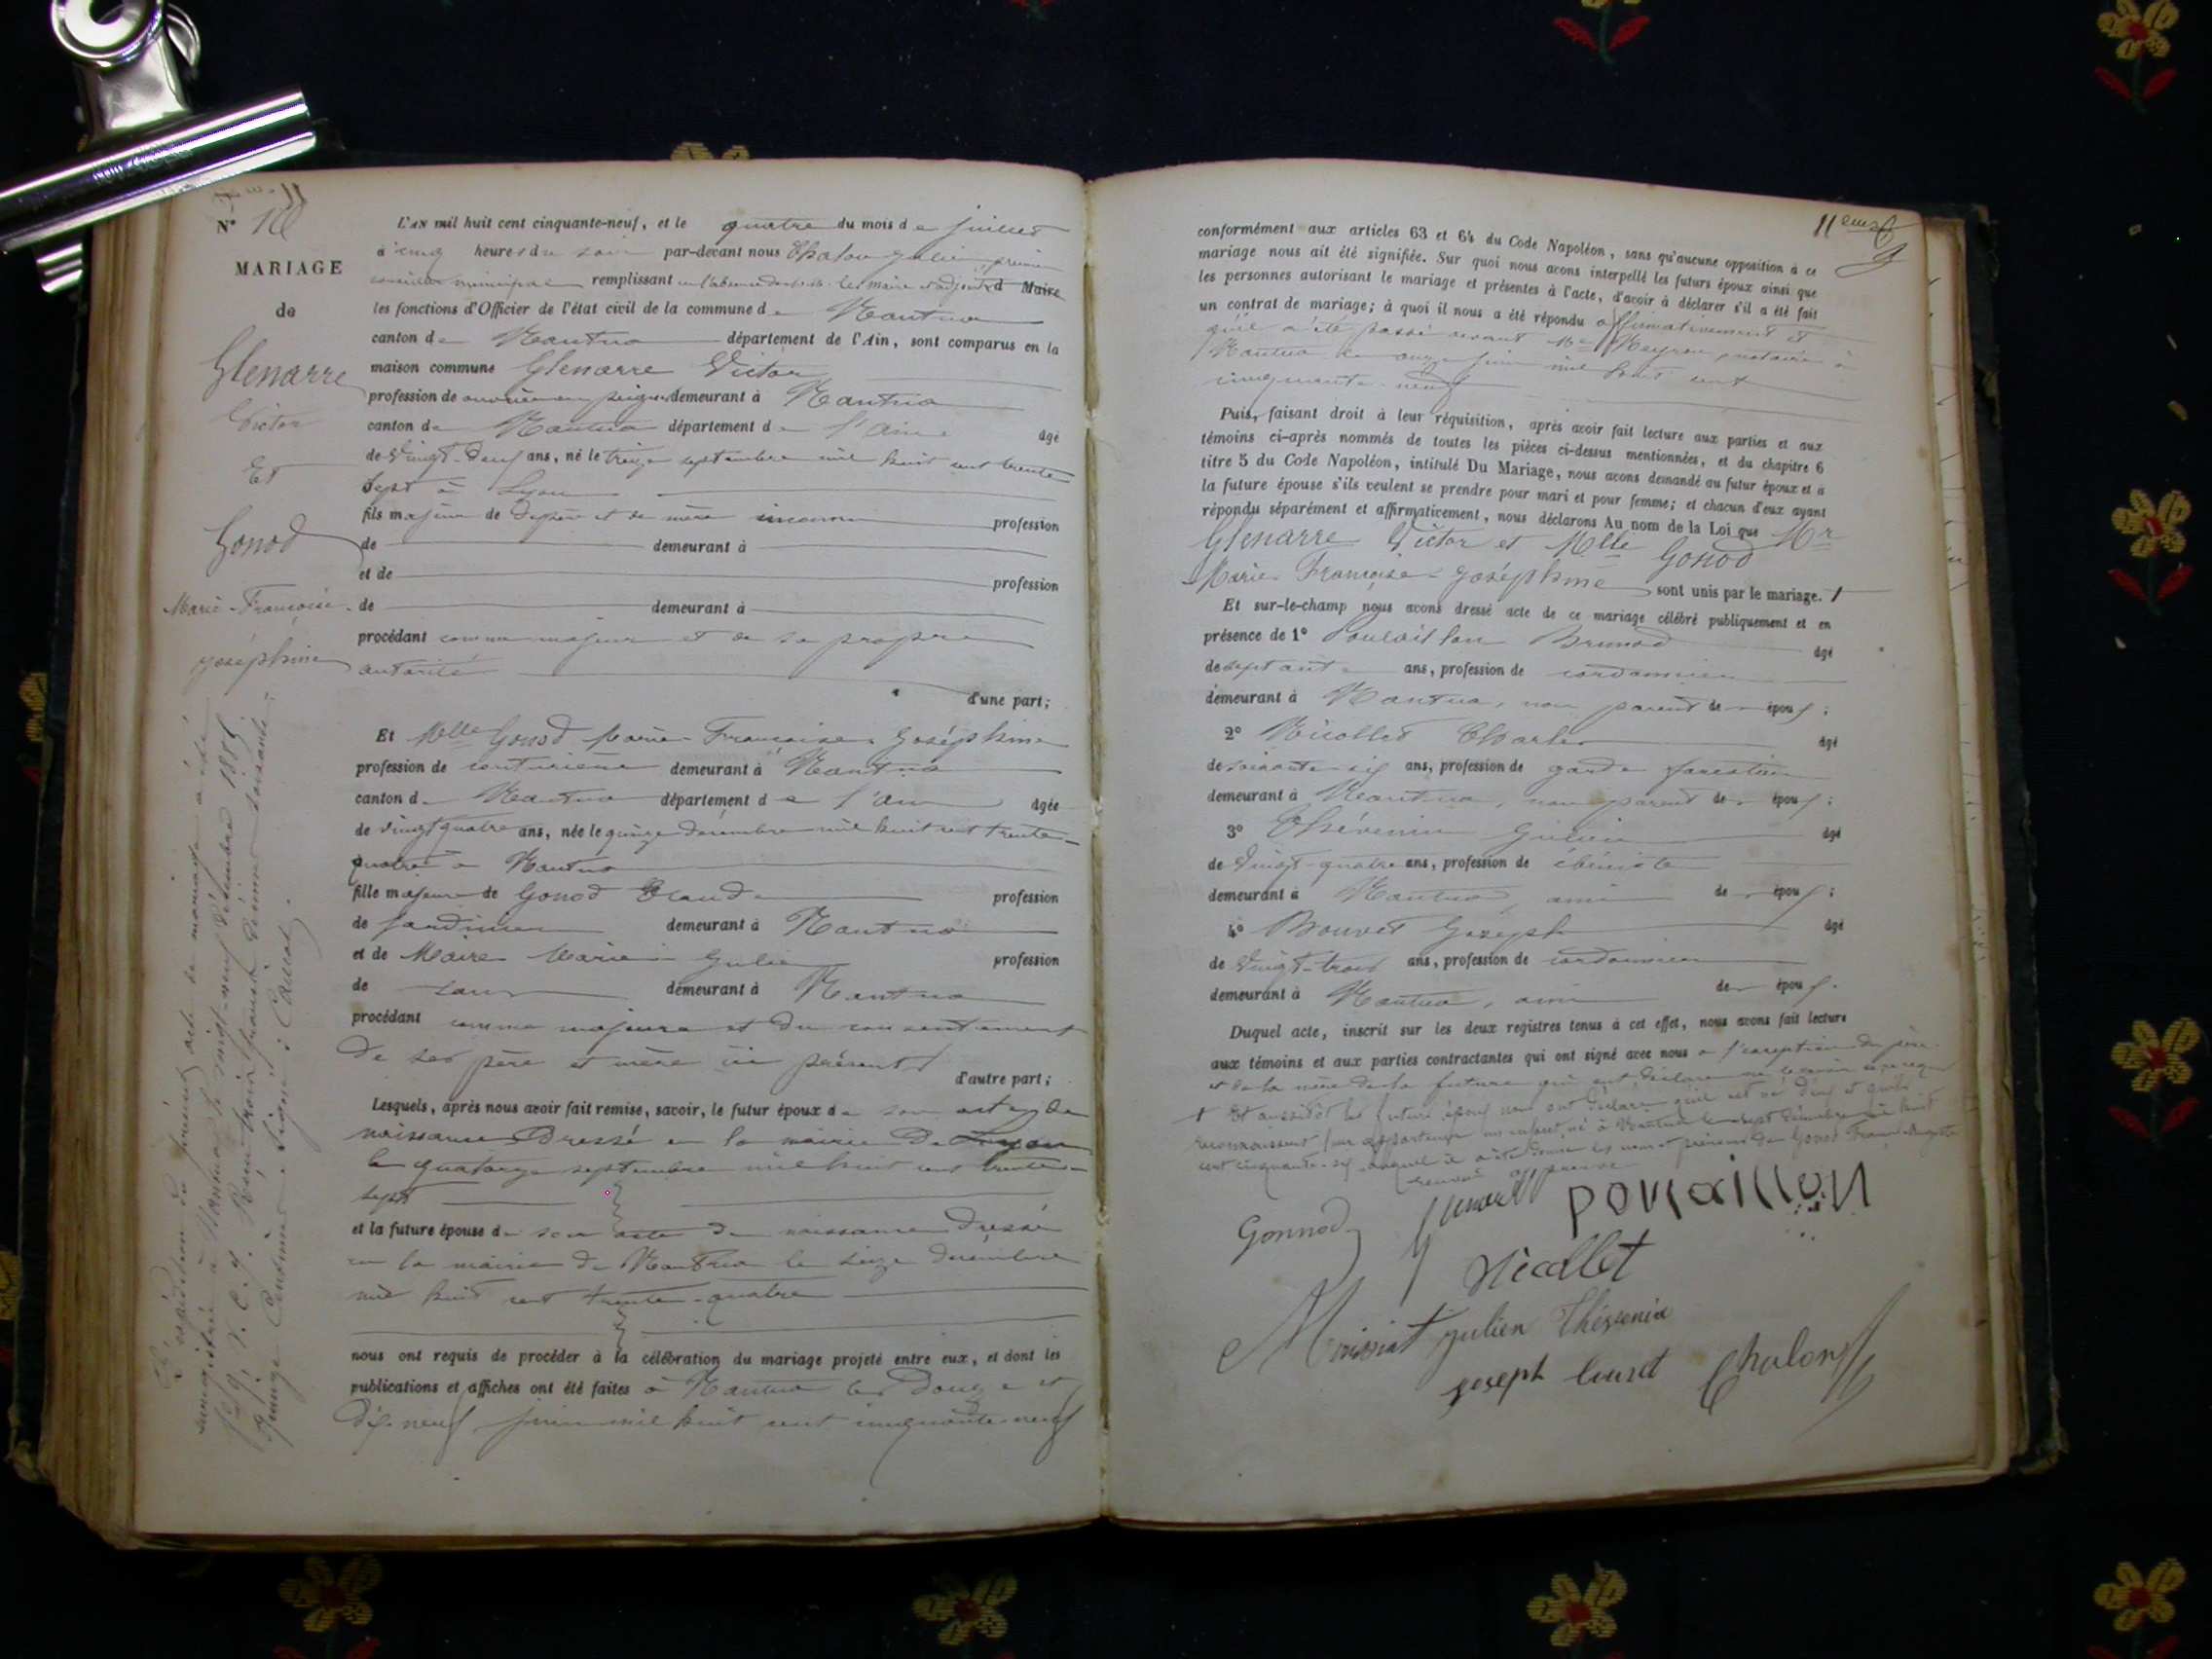 N° 10
MARIAGE
de
Glenarre
Victor
Et
Gonod
Marie-Françoise-
Joséphine
L'AN mil huit cent cinquante-neuf, et le quatre du mois de juillet
à cinq heures du soir par-devant nous Chalon Julien premier
conseiller municipal remplissant en l'absence de le maire et adjoint d Maire
les fonctions d'Officier de l'état civil de la commune de Nantua
canton de Nantua département de l'Ain, sont comparus en la
maison commune Glenarre Victor
profession de ouvrier en peignes demeurant à Nantua
canton de Nantua département de l'Ain âgé
de vingt-deux ans, né le treize septembre mil huit cent trente
sept à Lyon
fils majeur de de père et de mère inconnus profession
de demeurant à
et de profession
de demeurant à
procédant comme majeur et de sa propre
autorité
d'une part;
Et Melle Gonod Marie-Françoise-Joséphine
profession de couturière demeurant à Nantua
canton de Nantua département de l'Ain âgée
de vingt quatre ans, née le quinze décembre mil huit cent trente-
quatre à Nantua
fille majeure de Gonod Claude profession
de jardinier demeurant à Nantua
et de Maire Marie-Julie profession
de sans demeurant à Nantua
procédant comme majeure et du consentement
de ses père et mère ici présents
d'autre part;
Lesquels, après nous avoir fait remise, savoir, le futur époux de son acte de
naissance dressé en la mairie de Lyon
le quatorze septembre mil huit cent trente-
sept
et la future épouse de son acte de naissance dressé
en la mairie de Nantua le seize décembre
mil huit cent trente-quatre
nous ont requis de procéder à la célébration du mariage projeté entre eux, et dont les
publications et affiches ont été faites à Nantua les douze et
dix-neuf juin mil huit cent cinquante-neuf
Expédition du présent acte de mariage a été
enregistrée à Nantua le vingt-neuf décembre 1885
Reçu trois francs
centimes. Signé:
11
conformément aux articles 63 et 64 du Code Napoléon, sans qu'aucune opposition à ce
mariage nous ait été signifiée. Sur quoi nous avons interpellé les futurs époux ainsi que
les personnes autorisant le mariage et présentes à l'acte, d'avoir à déclarer s'il a été fait
un contrat de mariage; à quoi il nous a été répondu affirmativement et
qu'il a été passé devant Me Meyron, notaire à
Nantua le onze juin mil huit cent
cinquante-neuf
Puis, faisant droit à leur réquisition, après avoir fait lecture aux parties et aux
témoins ci-après nommés de toutes les pièces ci-dessus mentionnées, et du chapitre 6
titre 5 du Code Napoléon, intitulé Du Mariage, nous avons demandé au futur époux et à
la future épouse s'ils veulent se prendre pour mari et pour femme; et chacun d'eux ayant
répondu séparément et affirmativement, nous déclarons Au nom de la Loi que Mr
Glenarre Victor et Melle Gonod
Marie-Françoise-Joséphine sont unis par le mariage. +
Et sur-le-champ nous avons dressé acte de ce mariage célébré publiquement et en
présence de 1° Pouvaillon Brunod âgé
de septante ans, profession de cordonnier
demeurant à Nantua, non parent des époux;
2° Nicollet Charles âgé
de soixante-six ans, profession de garde forestier
demeurant à Nantua, non parent des époux;
3° Thévenin Julien âgé
de vingt-quatre ans, profession de ébéniste
demeurant à Nantua, ami des époux;
4° Bouvet Joseph âgé
de vingt-trois ans, profession de cordonnier
demeurant à Nantua, ami des époux.
Duquel acte, inscrit sur les deux registres tenus à cet effet, nous avons fait lecture
aux témoins et aux parties contractantes qui ont signé avec nous à l'exception du père
et de la mère de la future qui ont déclaré ne le savoir
+ Et aussitôt les futurs époux nous ont déclaré qu'il est né d'eux et qu'ils
reconnaissent pour appartenir un enfant né à Nantua le sept décembre mil huit
cent cinquante-six auquel il a été donné les nom et prénoms de Gonod
renvoi approuvé
Gonnod Glenarre pouvaillon
Nicollet
Moissiat Julien Thévenin
Joseph bouvet Chalon